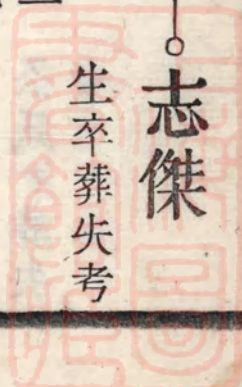 志傑
生卒葬失考